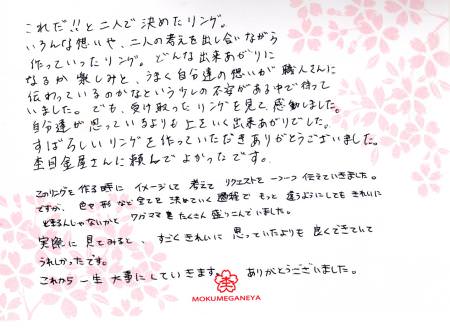 これだ!!と二人で決めたリング。
いろんな想いや、二人の考えを出し合いながら
作っていったリング。どんな出来あがりに
なるか楽しみと、うまく自分達の想いが職人さんに
伝わっているのかなという少しの不安がある中で待って
いました。でも、受け取ったリングを見て感動しました。
自分達が思っているよりも上をいく出来あがりでした。
すばらしいリングを作っていただきありがとうございました。
杢目金屋さんに頼んでよかったです。
このリングを作る時にイメージして考えてリクエストを一つ一つ伝えていきました。
ですが、色や形など全てを決めていく過程でもっと違うようにしてもきれいに
出きるんじゃないかとワガママもたくさん盛りこんでいました。
実際に見てみると、すごくきれいに思っていたよりも良くできていて
うれしかったです。
これから一生大事にしていきます。ありがとうございました。
MOKUMEGANEYA